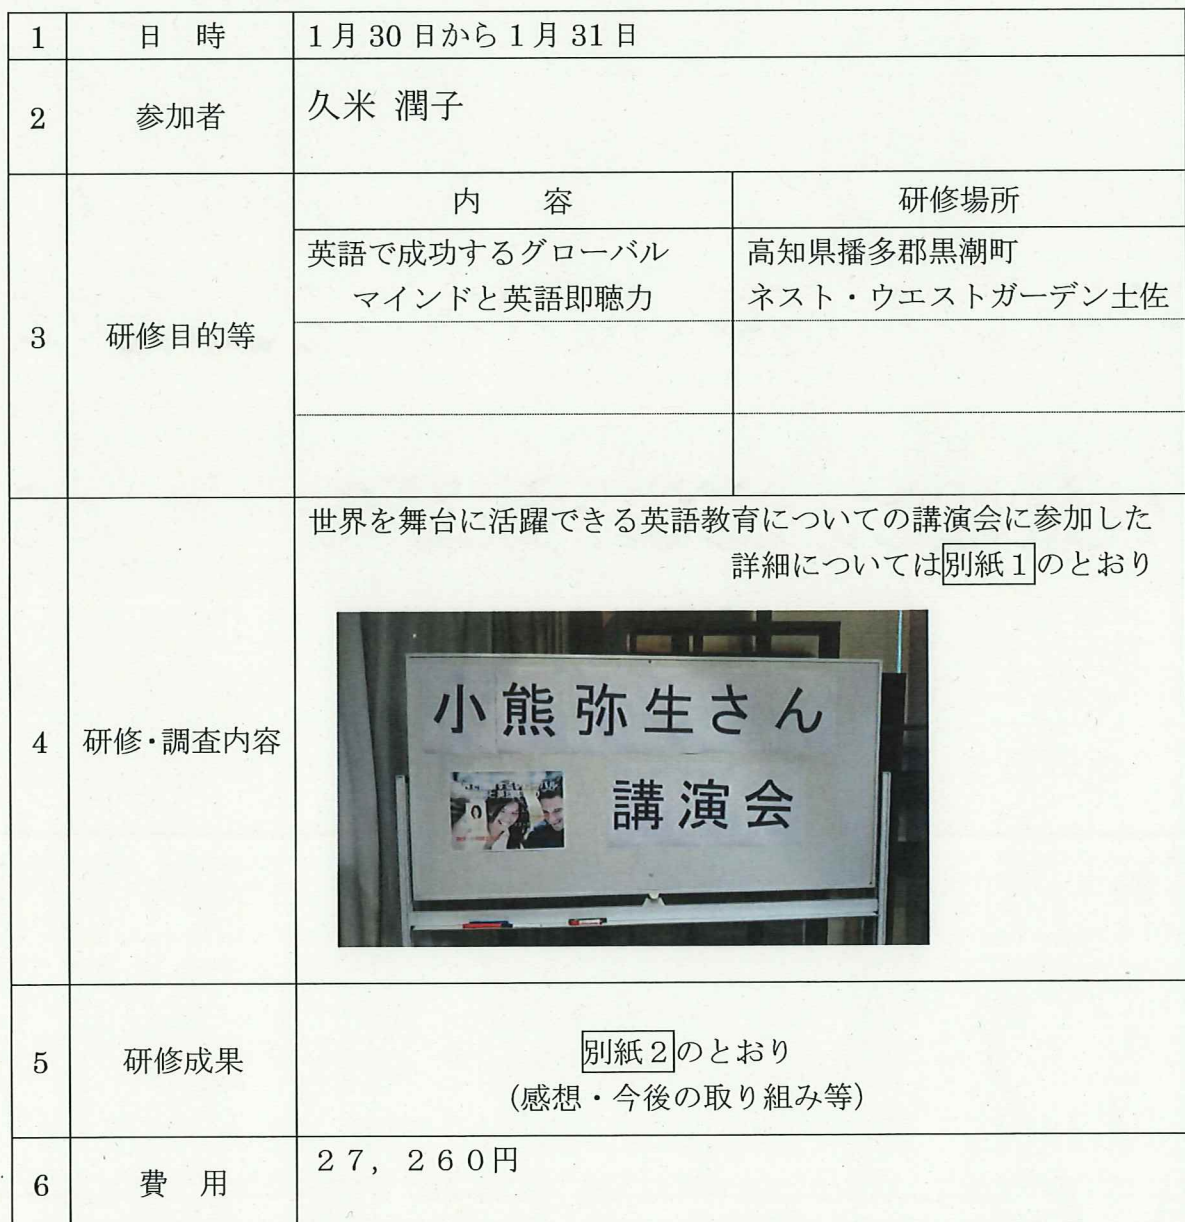 1 日 時 1月30日から1月31日
2 参加者 久米 潤子
3 研修目的等
内 容 研修場所
英語で成功するグローバル
マインドと英語即聴力
高知県播多郡黒潮町
ネスト・ウエストガーデン土佐
4 研修・調査内容
世界を舞台に活躍できる英語教育についての講演会に参加した
詳細については別紙1のとおり
小熊弥生さん
講演会
5 研修成果
別紙2のとおり
(感想・今後の取り組み等)
6 費 用 27,260円